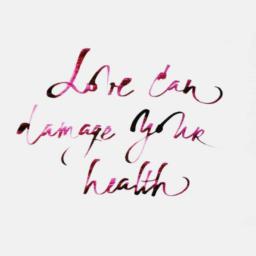 Love can
damage your
health